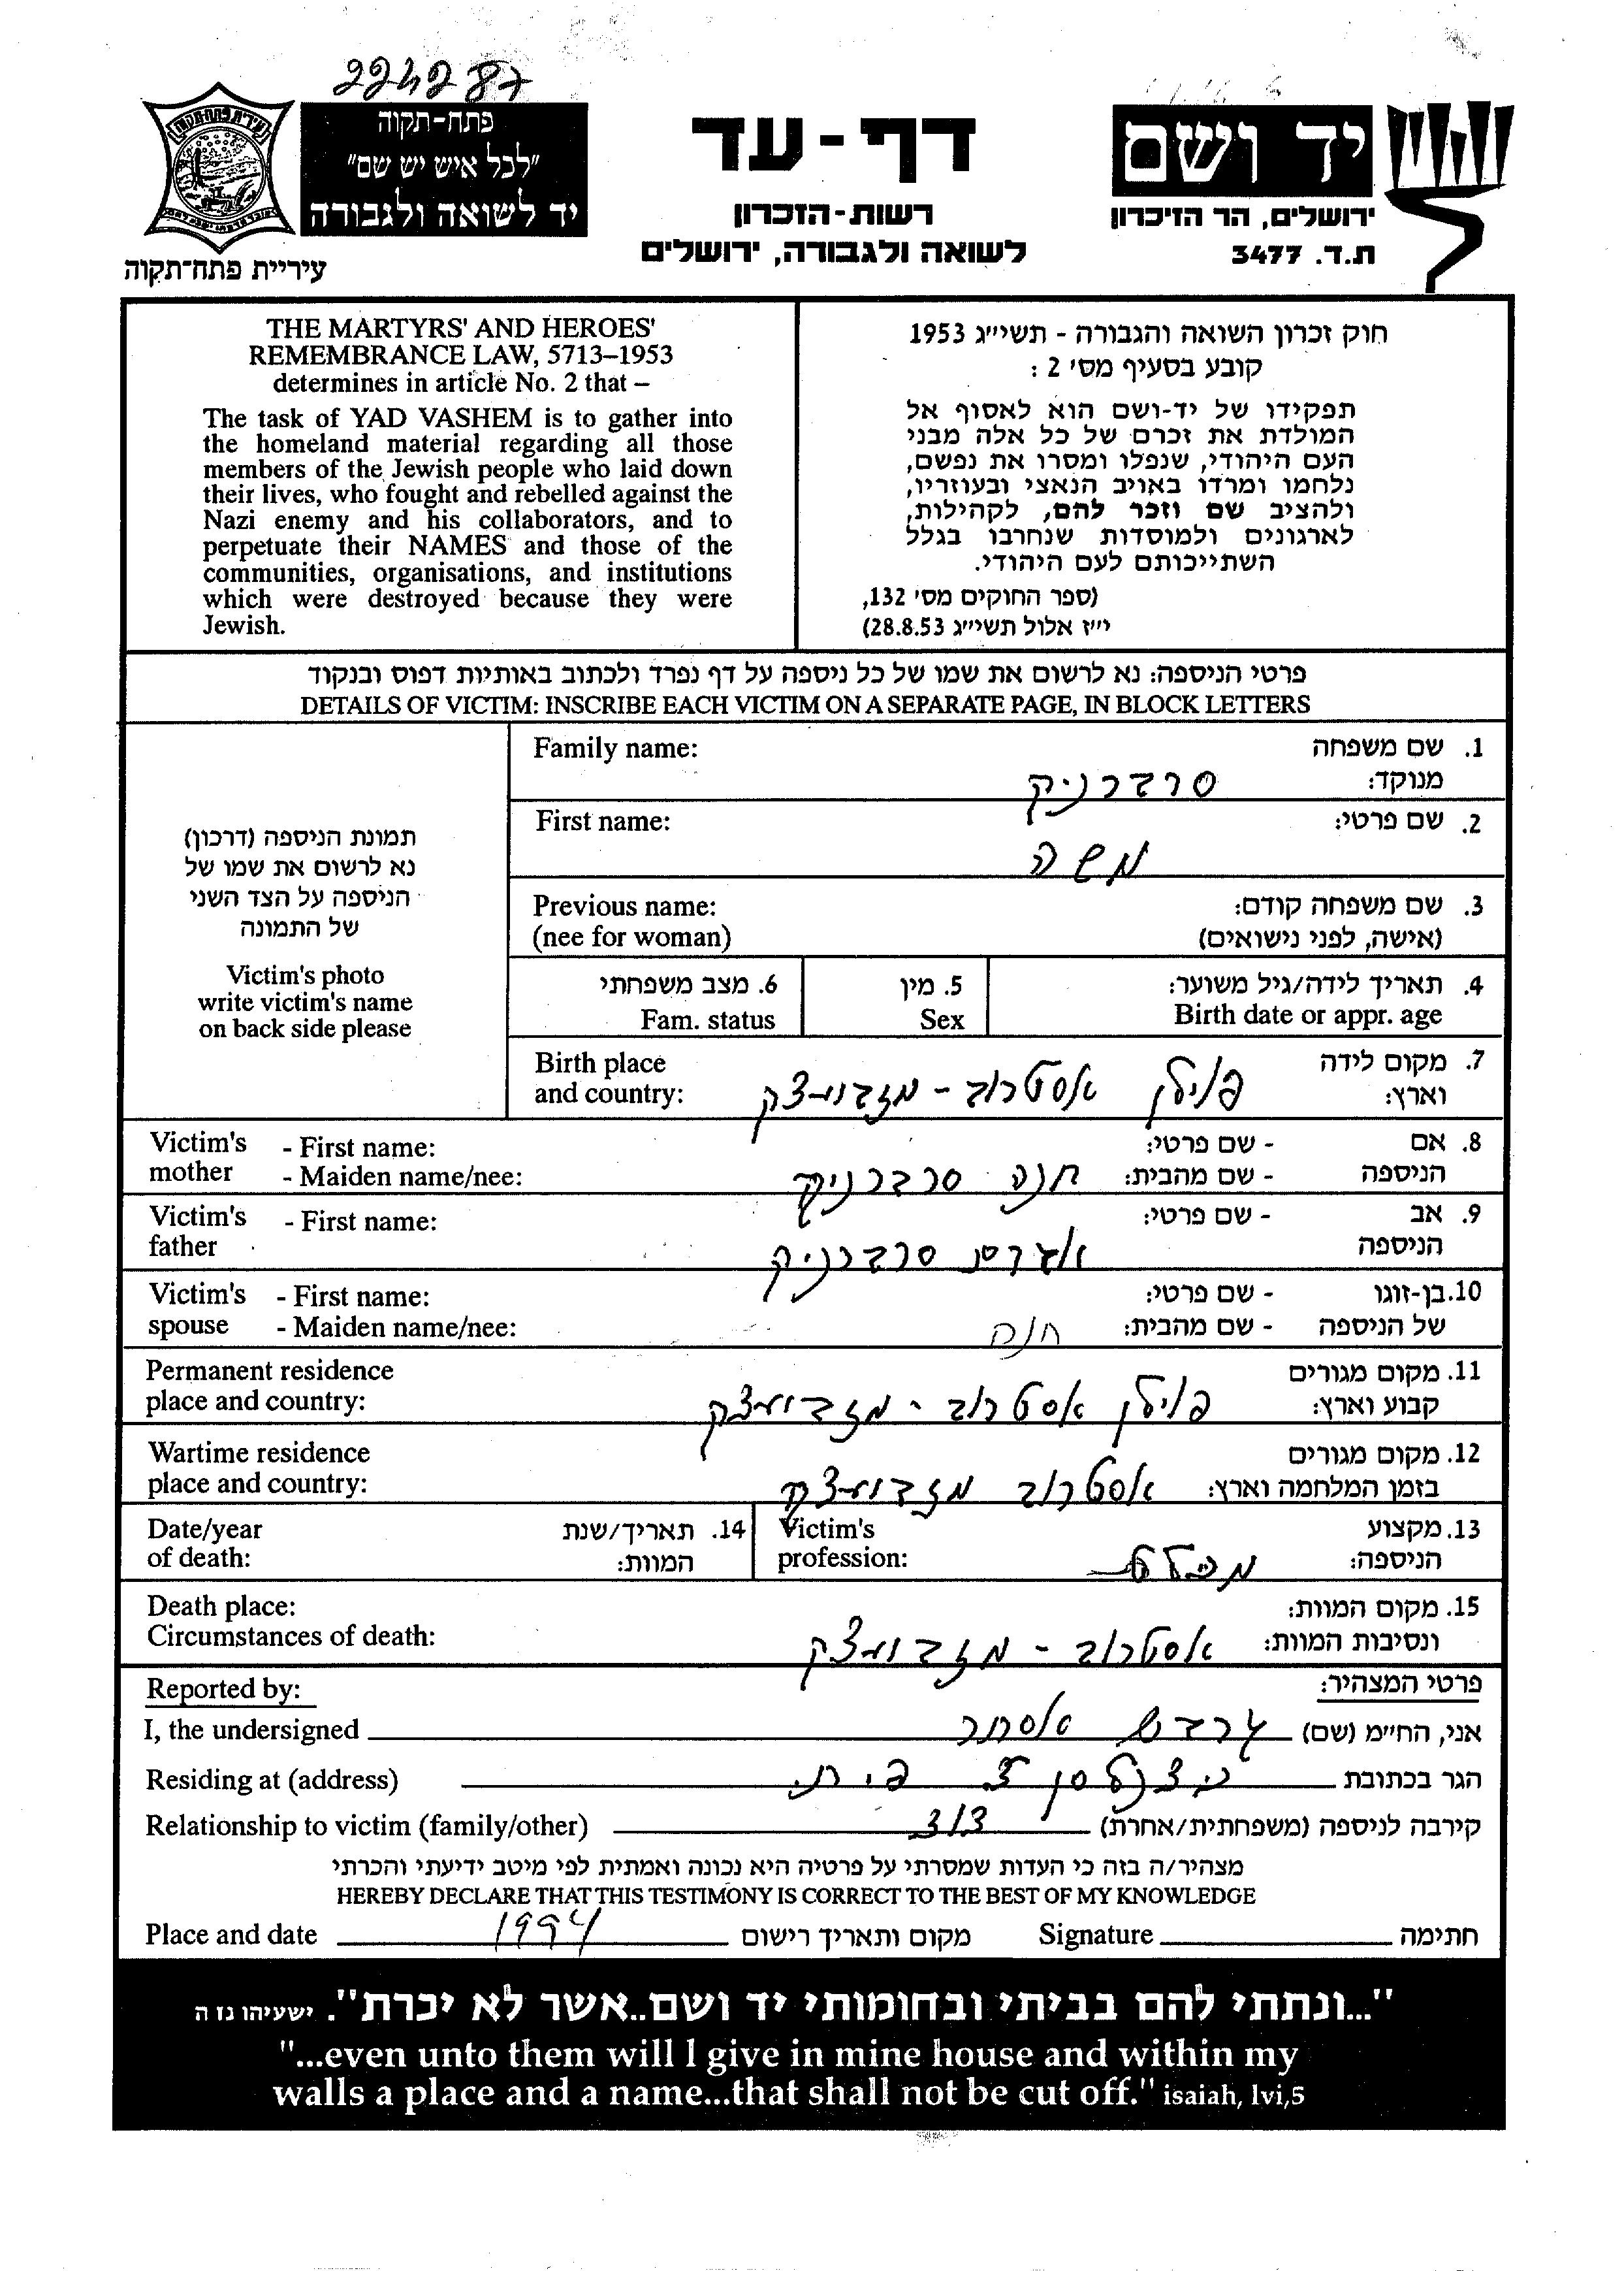 224287
פתח-תקוה
"לכל איש יש שם"
יד לשואה ולגבורה
עיריית פתח-תקוה
דף-עד
רשות-הזכרון
לשואה ולגבורה, ירושלים
יד ושם
ירושלים, הר הזיכרון
ת.ד. 3477
THE MARTYRS' AND HEROES'
REMEMBRANCE LAW, 5713–1953
determines in article No. 2 that –
The task of YAD VASHEM is to gather into
the homeland material regarding all those
members of the Jewish people who laid down
their lives, who fought and rebelled against the
Nazi enemy and his collaborators, and to
perpetuate their NAMES and those of the
communities, organisations, and institutions
which were destroyed because they were
Jewish.
חוק זכרון השואה והגבורה - תשי״ג 1953
קובע בסעיף מס׳ 2 :
תפקידו של יד-ושם הוא לאסוף אל
המולדת את זכרם של כל אלה מבני
העם היהודי, שנפלו ומסרו את נפשם,
נלחמו ומרדו באויב הנאצי ובעוזריו,
ולהציב שם וזכר להם, לקהילות,
לארגונים ולמוסדות שנחרבו בגלל
השתייכותם לעם היהודי.
(ספר החוקים מס׳ 132,
י״ז אלול תשי״ג 28.8.53)
פרטי הניספה: נא לרשום את שמו של כל ניספה על דף נפרד ולכתוב באותיות דפוס ובנקוד
DETAILS OF VICTIM: INSCRIBE EACH VICTIM ON A SEPARATE PAGE, IN BLOCK LETTERS
תמונת הניספה (דרכון)
נא לרשום את שמו של
הניספה על הצד השני
של התמונה
Victim's photo
write victim's name
on back side please
Family name: 1. שם משפחה
מנוקד: סרברניק
First name: 2. שם פרטי:
משה
Previous name: 3. שם משפחה קודם:
(nee for woman) (אישה, לפני נישואים)
4. תאריך לידה/גיל משוער: 5. מין 6. מצב משפחתי
Birth date or appr. age Sex Fam. status
Birth place 7. מקום לידה
and country: וארץ: פולין אסטרוב - מזבוצק
Victim's - First name: 8. אם - שם פרטי:
mother - Maiden name/nee: הניספה - שם מהבית: חנה סרברניק
Victim's - First name: 9. אב - שם פרטי:
father הניספה סרברניק
Victim's - First name: 10. בן-זוגו - שם פרטי:
spouse - Maiden name/nee: של הניספה - שם מהבית: חנה
Permanent residence 11. מקום מגורים
place and country: קבוע וארץ: פולין אסטרוב - מזבוצק
Wartime residence 12. מקום מגורים
place and country: בזמן המלחמה וארץ: אסטרוב מזבוצק
Date/year 14. תאריך/שנת Victim's 13. מקצוע
of death: המוות: profession: הניספה:
Death place: 15. מקום המוות:
Circumstances of death: ונסיבות המוות: אסטרוב - מזבוצק
Reported by: פרטי המצהיר:
I, the undersigned אני, החי״מ (שם) אסתר
Residing at (address) הגר בכתובת
Relationship to victim (family/other) קירבה לניספה (משפחתית/אחרת) דוד
מצהיר/ה בזה כי העדות שמסרתי על פרטיה היא נכונה ואמתית לפי מיטב ידיעתי והכרתי
HEREBY DECLARE THAT THIS TESTIMONY IS CORRECT TO THE BEST OF MY KNOWLEDGE
Place and date 1994 מקום ותאריך רישום Signature חתימה
"...ונתתי להם בביתי ובחומותי יד ושם..אשר לא יכרת". ישעיהו נז ה
"...even unto them will I give in mine house and within my
walls a place and a name...that shall not be cut off." isaiah, lvi,5